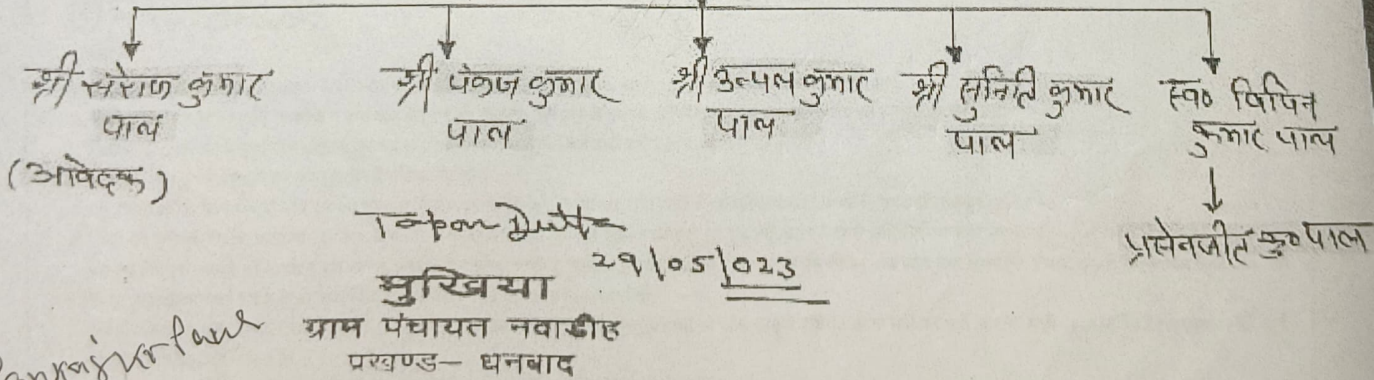 श्री सरोज कुमार
पाल
(आवेदक)
श्री पंकज कुमार
पाल
श्री उत्पल कुमार
पाल
श्री सुनिति कुमार
पाल
स्व० विपिन
कुमार पाल
प्रसेनजीत कु० पाल
Tapan Dutta
29/05/023
मुखिया
ग्राम पंचायत नवाडीह
प्रखण्ड- धनबाद
Pankaj Kr Paul